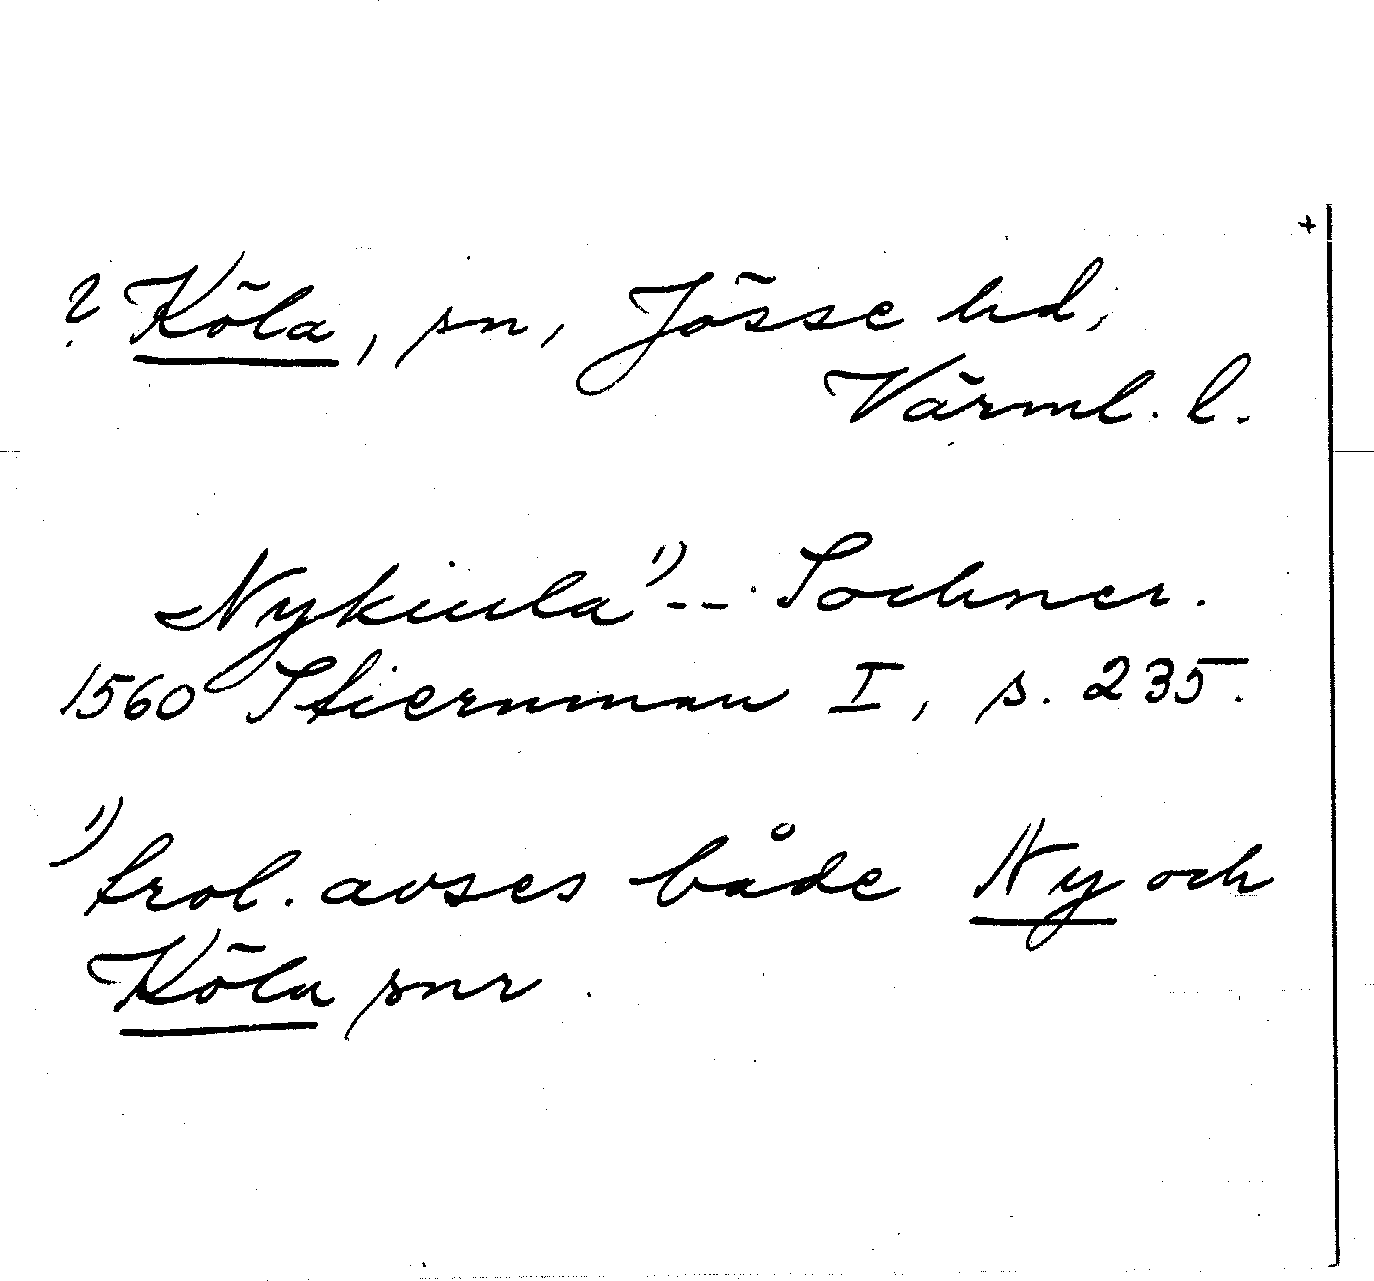 +
? Köla, sn, Jösse hd,
Värml. l.
Nykiula 1) -- Sochner.
1560 Stiernman I, s. 235.
1) trol. avses både Ny och
Köla snr.